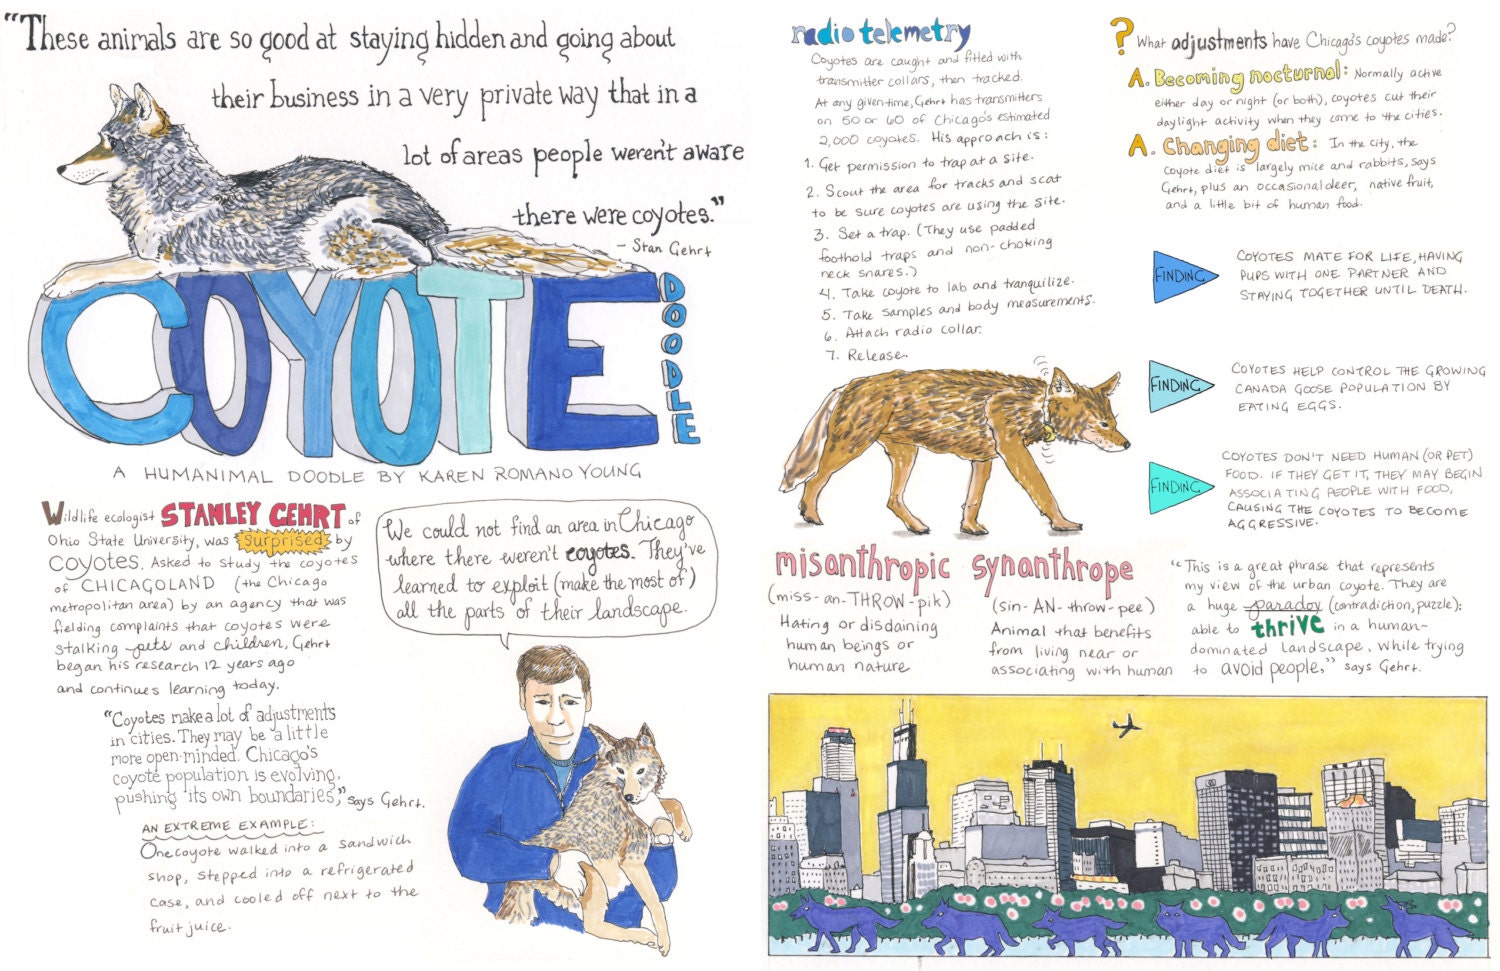 "These animals are so good at staying hidden and going about
their business in a very private way that in a
lot of areas people weren't aware
there were coyotes."
- Stan Gehrt
COYOTE
DOODLE
A HUMANIMAL DOODLE BY KAREN ROMANO YOUNG
Wildlife ecologist STANLEY GEHRT of
Ohio State University, was surprised by
coyotes. Asked to study the coyotes
of CHICAGOLAND (the Chicago
metropolitan area) by an agency that was
fielding complaints that coyotes were
stalking pets and children, Gehrt
began his research 12 years ago
and continues learning today.
"Coyotes make a lot of adjustments
in cities. They may be a little
more open-minded. Chicago's
coyote population is evolving,
pushing its own boundaries," says Gehrt.
AN EXTREME EXAMPLE:
One coyote walked into a sandwich
shop, stepped into a refrigerated
case, and cooled off next to the
fruit juice.
We could not find an area in Chicago
where there weren't coyotes. They've
learned to exploit (make the most of)
all the parts of their landscape.
radio telemetry
Coyotes are caught and fitted with
transmitter collars, then tracked.
At any given time, Gehrt has transmitters
on 50 or 60 of Chicago's estimated
2,000 coyotes. His approach is:
1. Get permission to trap at a site.
2. Scout the area for tracks and scat
to be sure coyotes are using the site.
3. Set a trap. (They use padded
foothold traps and non-choking
neck snares.)
4. Take coyote to lab and tranquilize.
5. Take samples and body measurements.
6. Attach radio collar.
7. Release.
? What adjustments have Chicago's coyotes made?
A. Becoming nocturnal: Normally active
either day or night (or both), coyotes cut their
daylight activity when they come to the cities.
A. Changing diet: In the city, the
coyote diet is largely mice and rabbits, says
Gehrt, plus an occasional deer, native fruit,
and a little bit of human food.
FINDING
COYOTES MATE FOR LIFE, HAVING
PUPS WITH ONE PARTNER AND
STAYING TOGETHER UNTIL DEATH.
FINDING
COYOTES HELP CONTROL THE GROWING
CANADA GOOSE POPULATION BY
EATING EGGS.
FINDING
COYOTES DON'T NEED HUMAN (OR PET)
FOOD. IF THEY GET IT, THEY MAY BEGIN
ASSOCIATING PEOPLE WITH FOOD,
CAUSING THE COYOTES TO BECOME
AGGRESSIVE.
misanthropic
(miss-an-THROW-pik)
Hating or disdaining
human beings or
human nature
synanthrope
(sin-AN-throw-pee)
Animal that benefits
from living near or
associating with human
"This is a great phrase that represents
my view of the urban coyote. They are
a huge paradox (contradiction, puzzle):
able to thrive in a human-
dominated landscape, while trying
to avoid people," says Gehrt.